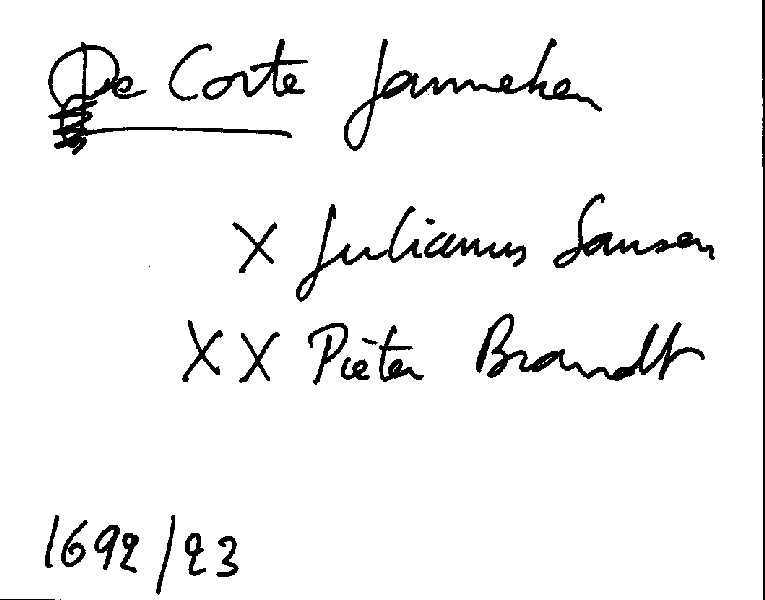 De Corte Janneken
X Julianus Sansen
XX Pieter Brandt
1692/23